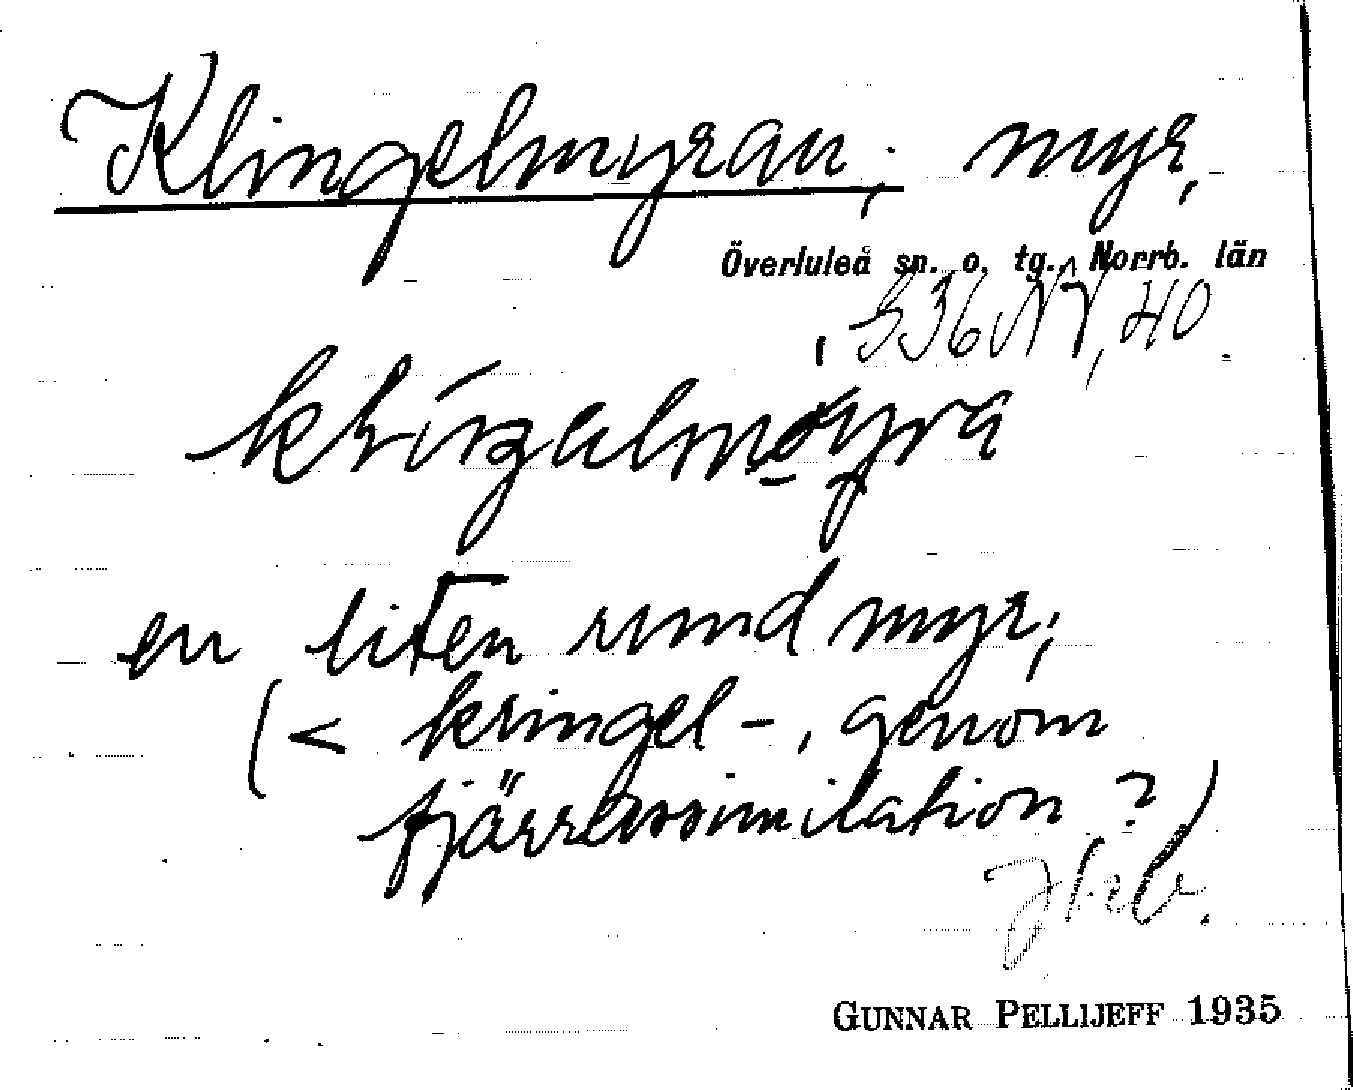 Klingelmyran, myr,
Överluleå sn. o. tg. Norrb. län
en liten rund myr;
(< kringel-, genom
fjärrassimilation?)
GUNNAR PELLIJEFF 1935